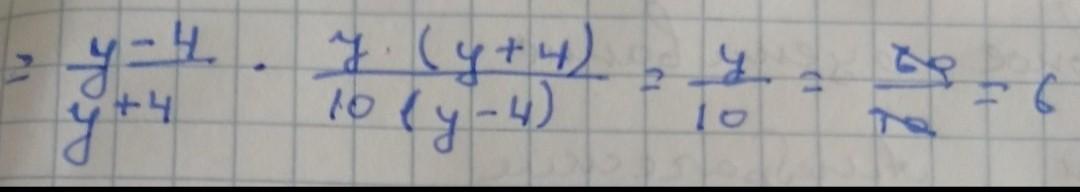 = y-4/y+4 · y·(y+4)/10(y-4) = y/10 = 60/10 = 6